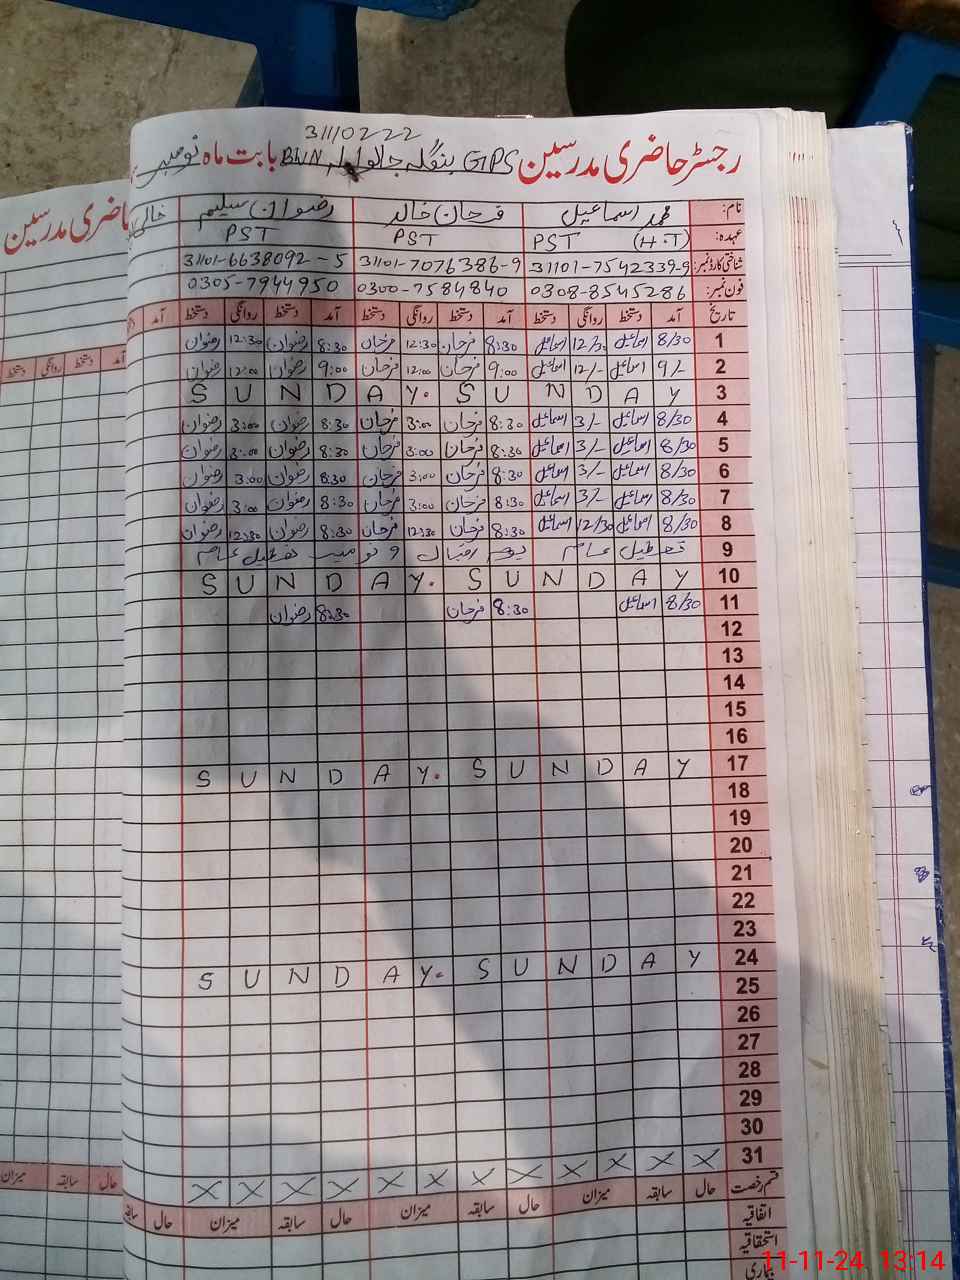 31110222
رجسٹر حاضری مدرسین GPS بنگلہ جالوالہ BWN بابت ماہ نومبر
نام: محمد اسماعیل فرحان خالد رضوان سلیم خالی
عہدہ: PST (H.T) PST PST
شناختی کارڈ نمبر: 31101-7542339-9 31101-7076386-9 31101-6638092-5
فون نمبر: 0308-8545286 0300-7584840 0305-7944950
تاریخ آمد دستخط روانگی دستخط آمد دستخط روانگی دستخط آمد دستخط روانگی دستخط آمد
1 8/30 اسماعیل 12/30 اسماعیل 8:30 فرحان 12:30 فرحان 8:30 رضوان 12:30 رضوان
2 9/- اسماعیل 12/- اسماعیل 9:00 فرحان 12:00 فرحان 9:00 رضوان 12:00 رضوان
3 S U N D A Y. S U N D A Y
4 8/30 اسماعیل 3/- اسماعیل 8:30 فرحان 3:00 فرحان 8:30 رضوان 3:00 رضوان
5 8/30 اسماعیل 3/- اسماعیل 8:30 فرحان 3:00 فرحان 8:30 رضوان 3:00 رضوان
6 8/30 اسماعیل 3/- اسماعیل 8:30 فرحان 3:00 فرحان 8:30 رضوان 3:00 رضوان
7 8/30 اسماعیل 3/- اسماعیل 8:30 فرحان 3:00 فرحان 8:30 رضوان 3:00 رضوان
8 8/30 اسماعیل 12/30 اسماعیل 8:30 فرحان 12:30 فرحان 8:30 رضوان 12:30 رضوان
9 تعطیل عام یوم اقبال 9 نومبر تعطیل عام
10 S U N D A Y. S U N D A Y
11 8/30 اسماعیل 8:30 فرحان 8:30 رضوان
12
13
14
15
16
17 S U N D A Y. S U N D A Y
18
19
20
21
22
23
24 S U N D A Y. S U N D A Y
25
26
27
28
29
30
31 X X X X X X X X X X X X
قسم رخصت حال سابقہ میزان حال سابقہ میزان حال سابقہ میزان حال سابقہ
اتفاقیہ
استحقاقیہ
بیماری
حاضری مدرسین
آمد دستخط روانگی دستخط
حال سابقہ میزان
11-11-24 13:14